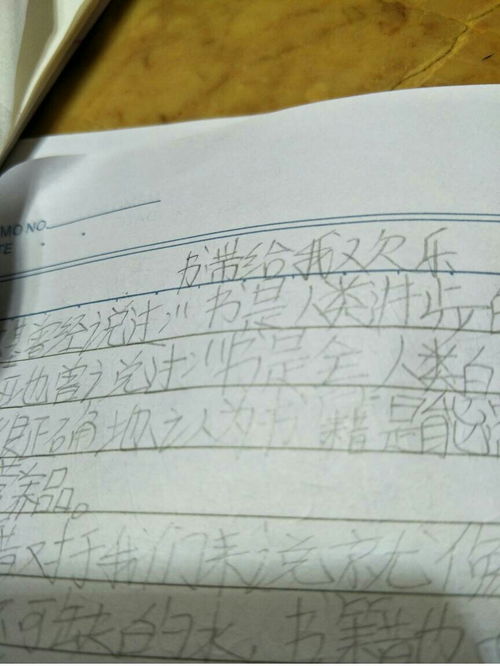 MO NO.
TE
书带给我欢乐
曾经说过："书是人类进步的
也曾说过："书是全人类的
正确地认为书籍是能
养品。
对于我们来说就像
不可缺的水，书籍也